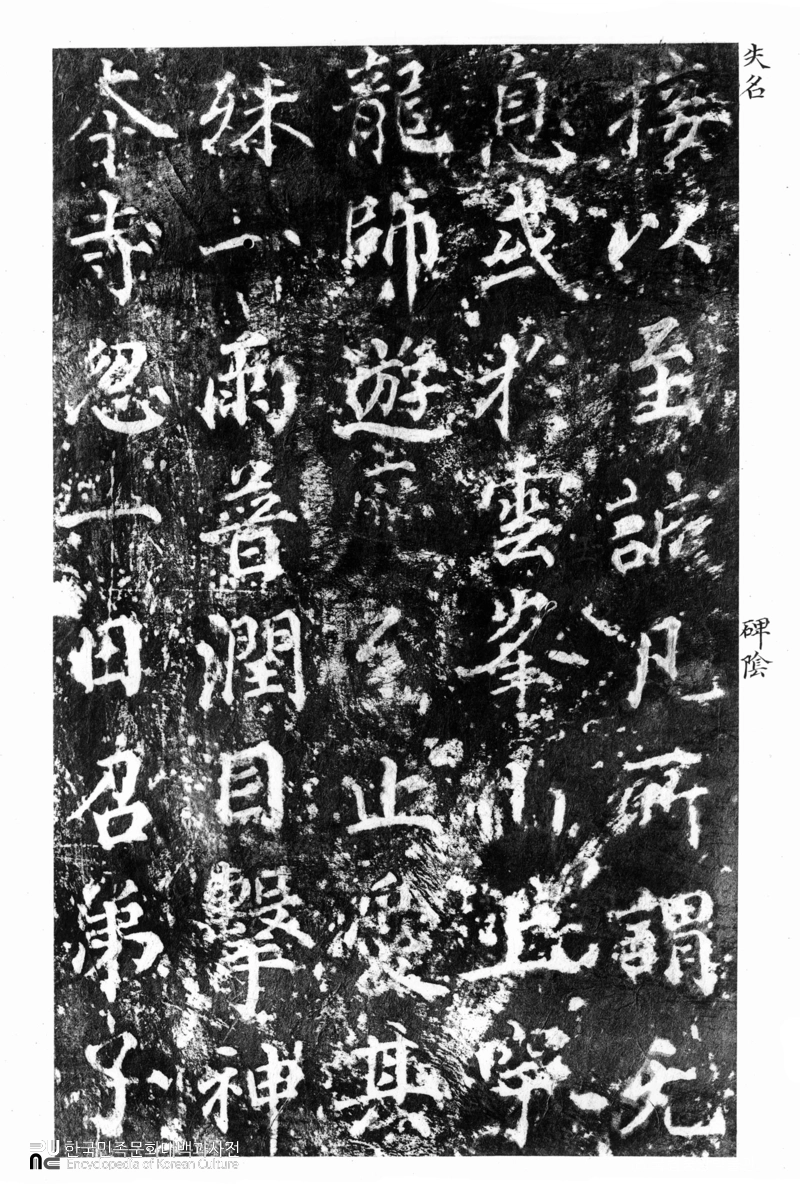 失名 碑陰
接以至凡所謂无
息或於雲峯山
龍師遊至止愛其
殊一雨普潤目擊神
夲寺忽一日召弟子
한국민족문화대백과사전
Encyclopedia of Korean Culture